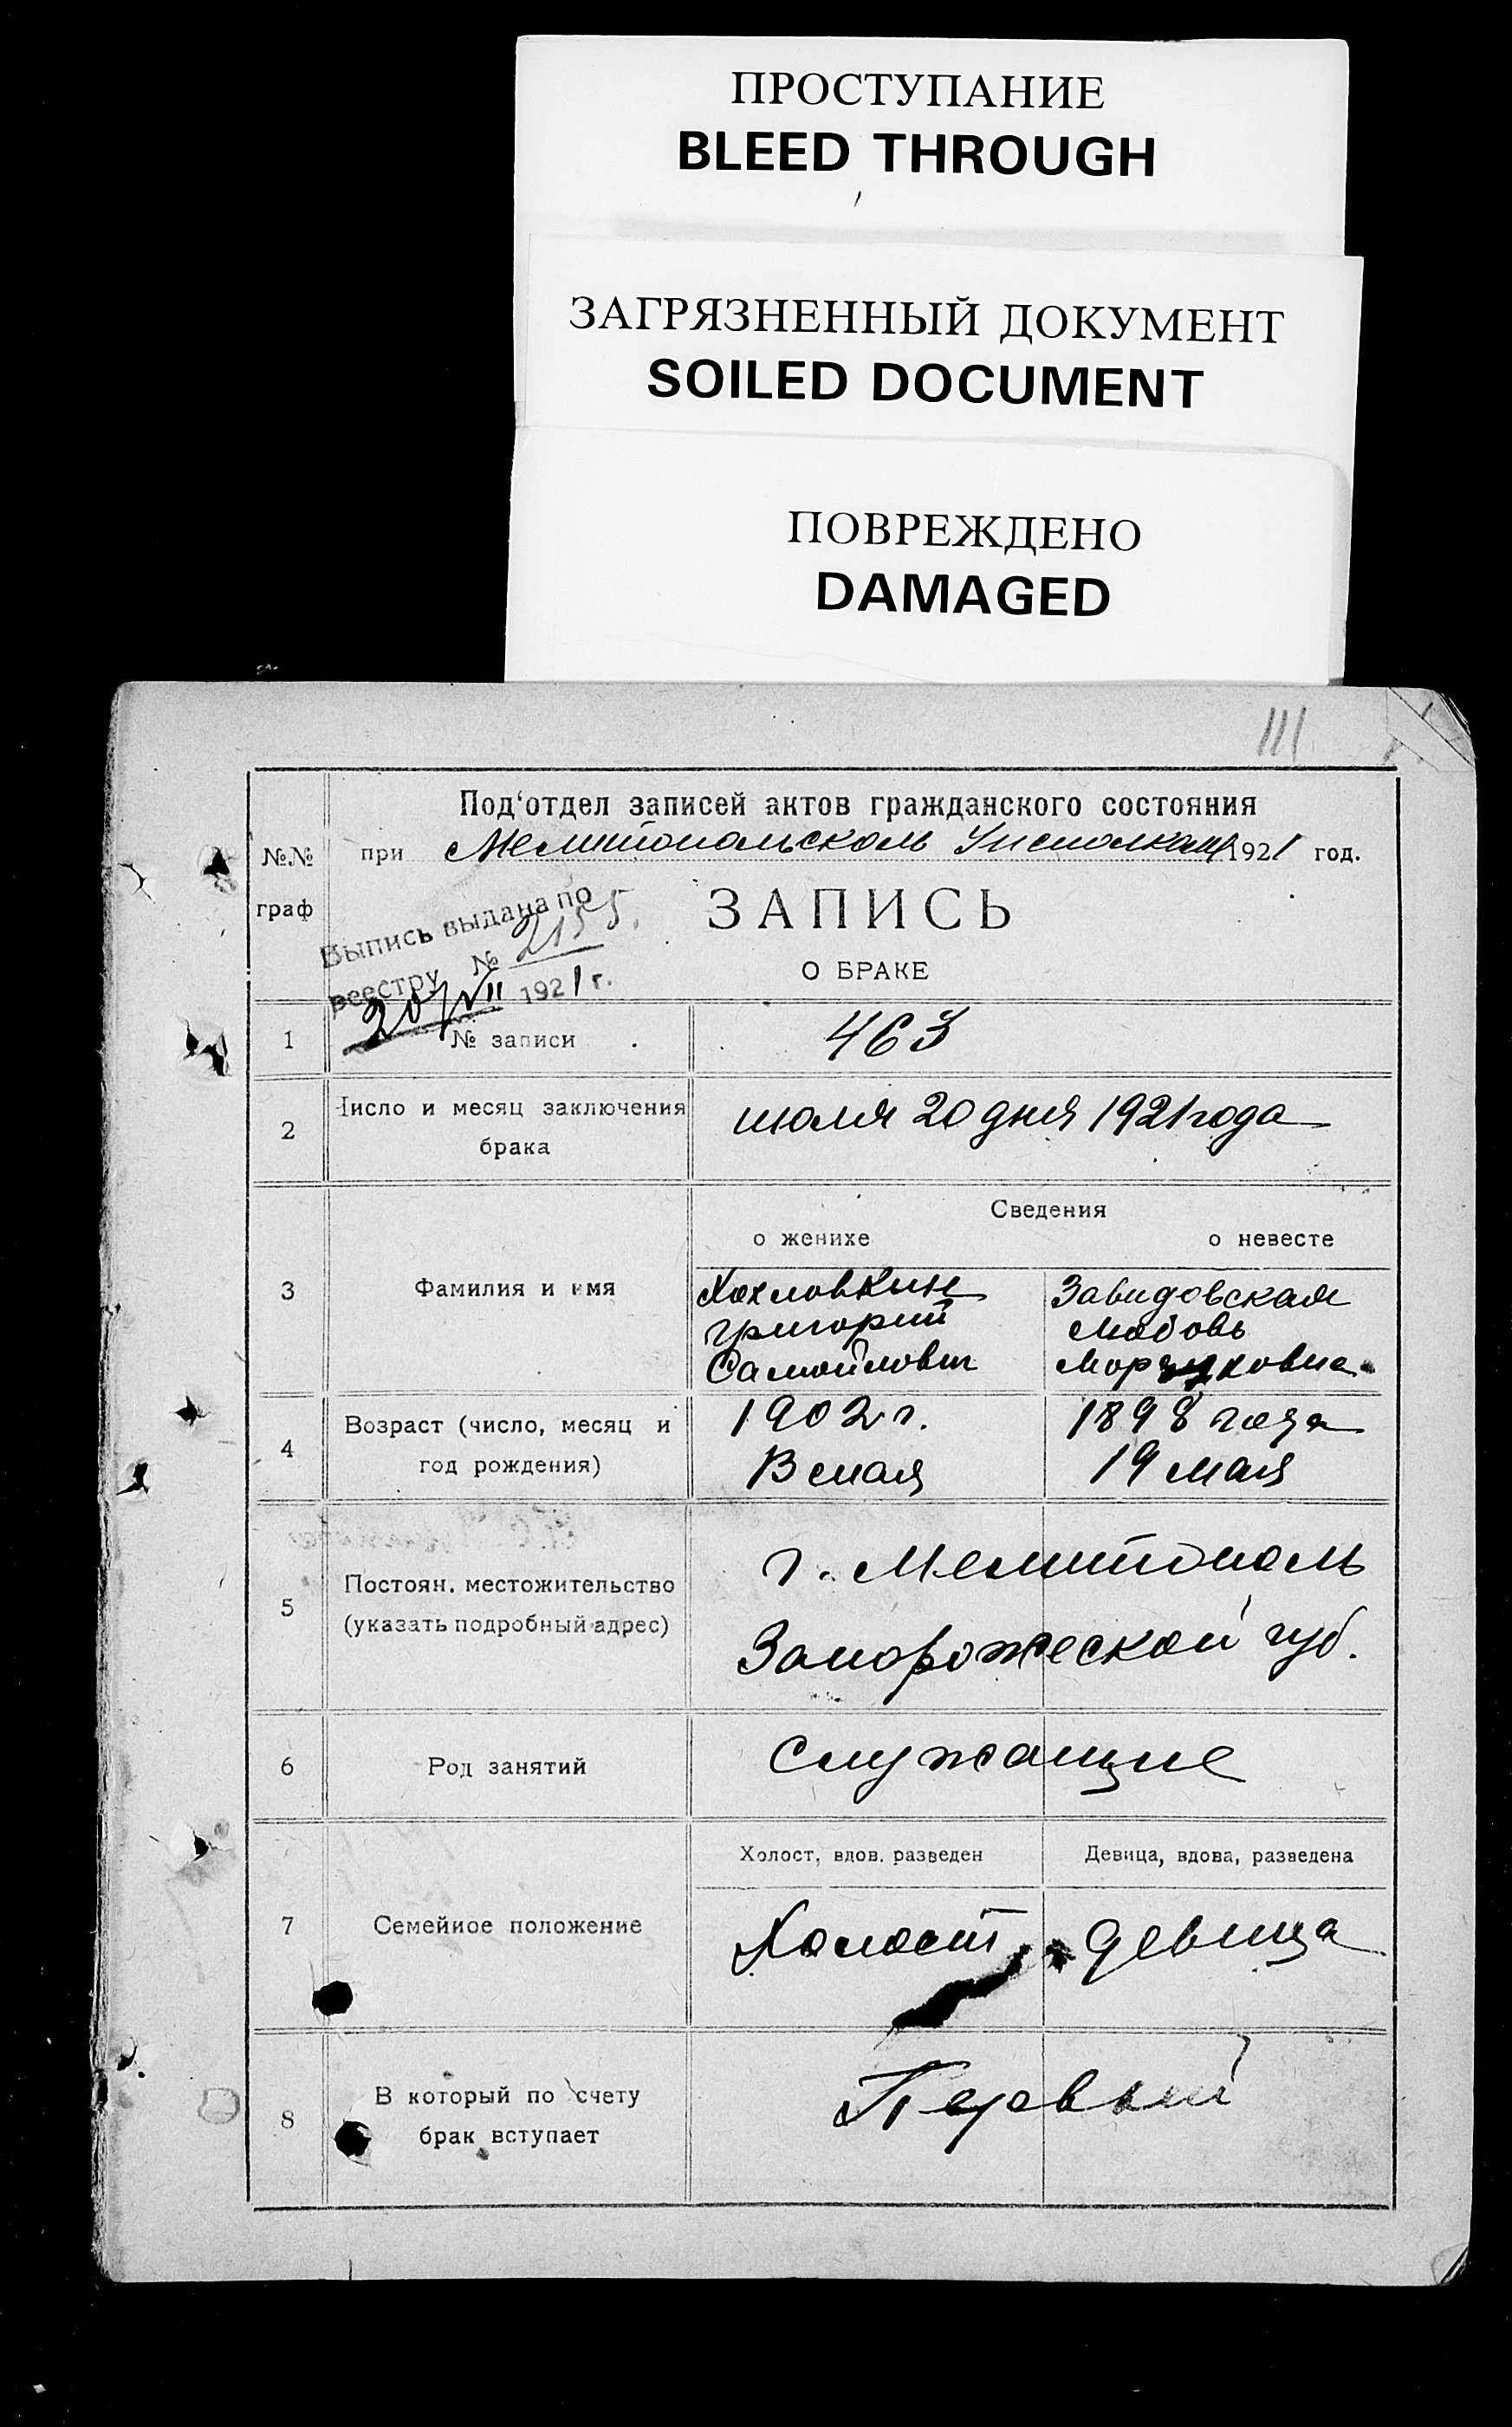 ПРОСТУПАНИЕ
BLEED THROUGH
ЗАГРЯЗНЕННЫЙ ДОКУМЕНТ
SOILED DOCUMENT
ПОВРЕЖДЕНО
DAMAGED
111
Под‘отдел записей актов гражданского состояния
№№
граф
при Мелитопольском 1921 год.
Выпись выдана по
реестру № 2155.
20/VII 1921 г.
ЗАПИСЬ
О БРАКЕ
1 № записи 463
2 Число и месяц заключения
брака
июля 20 дня 1921 года
Сведения
о женихе о невесте
3 Фамилия и имя
Хохловкин
Григорий
Самойлович
Завидовская
Любовь
4 Возраст (число, месяц и
год рождения)
1902 г.
мая
1898 года
19 мая
5 Постоян. местожительство
(указать подробный адрес)
г. Мелитополь
Запорожеской губ.
6 Род занятий служащие
Холост, вдов. разведен Девица, вдова, разведена
7 Семейное положение Холост девица
8 В который по счету
брак вступает
Первый